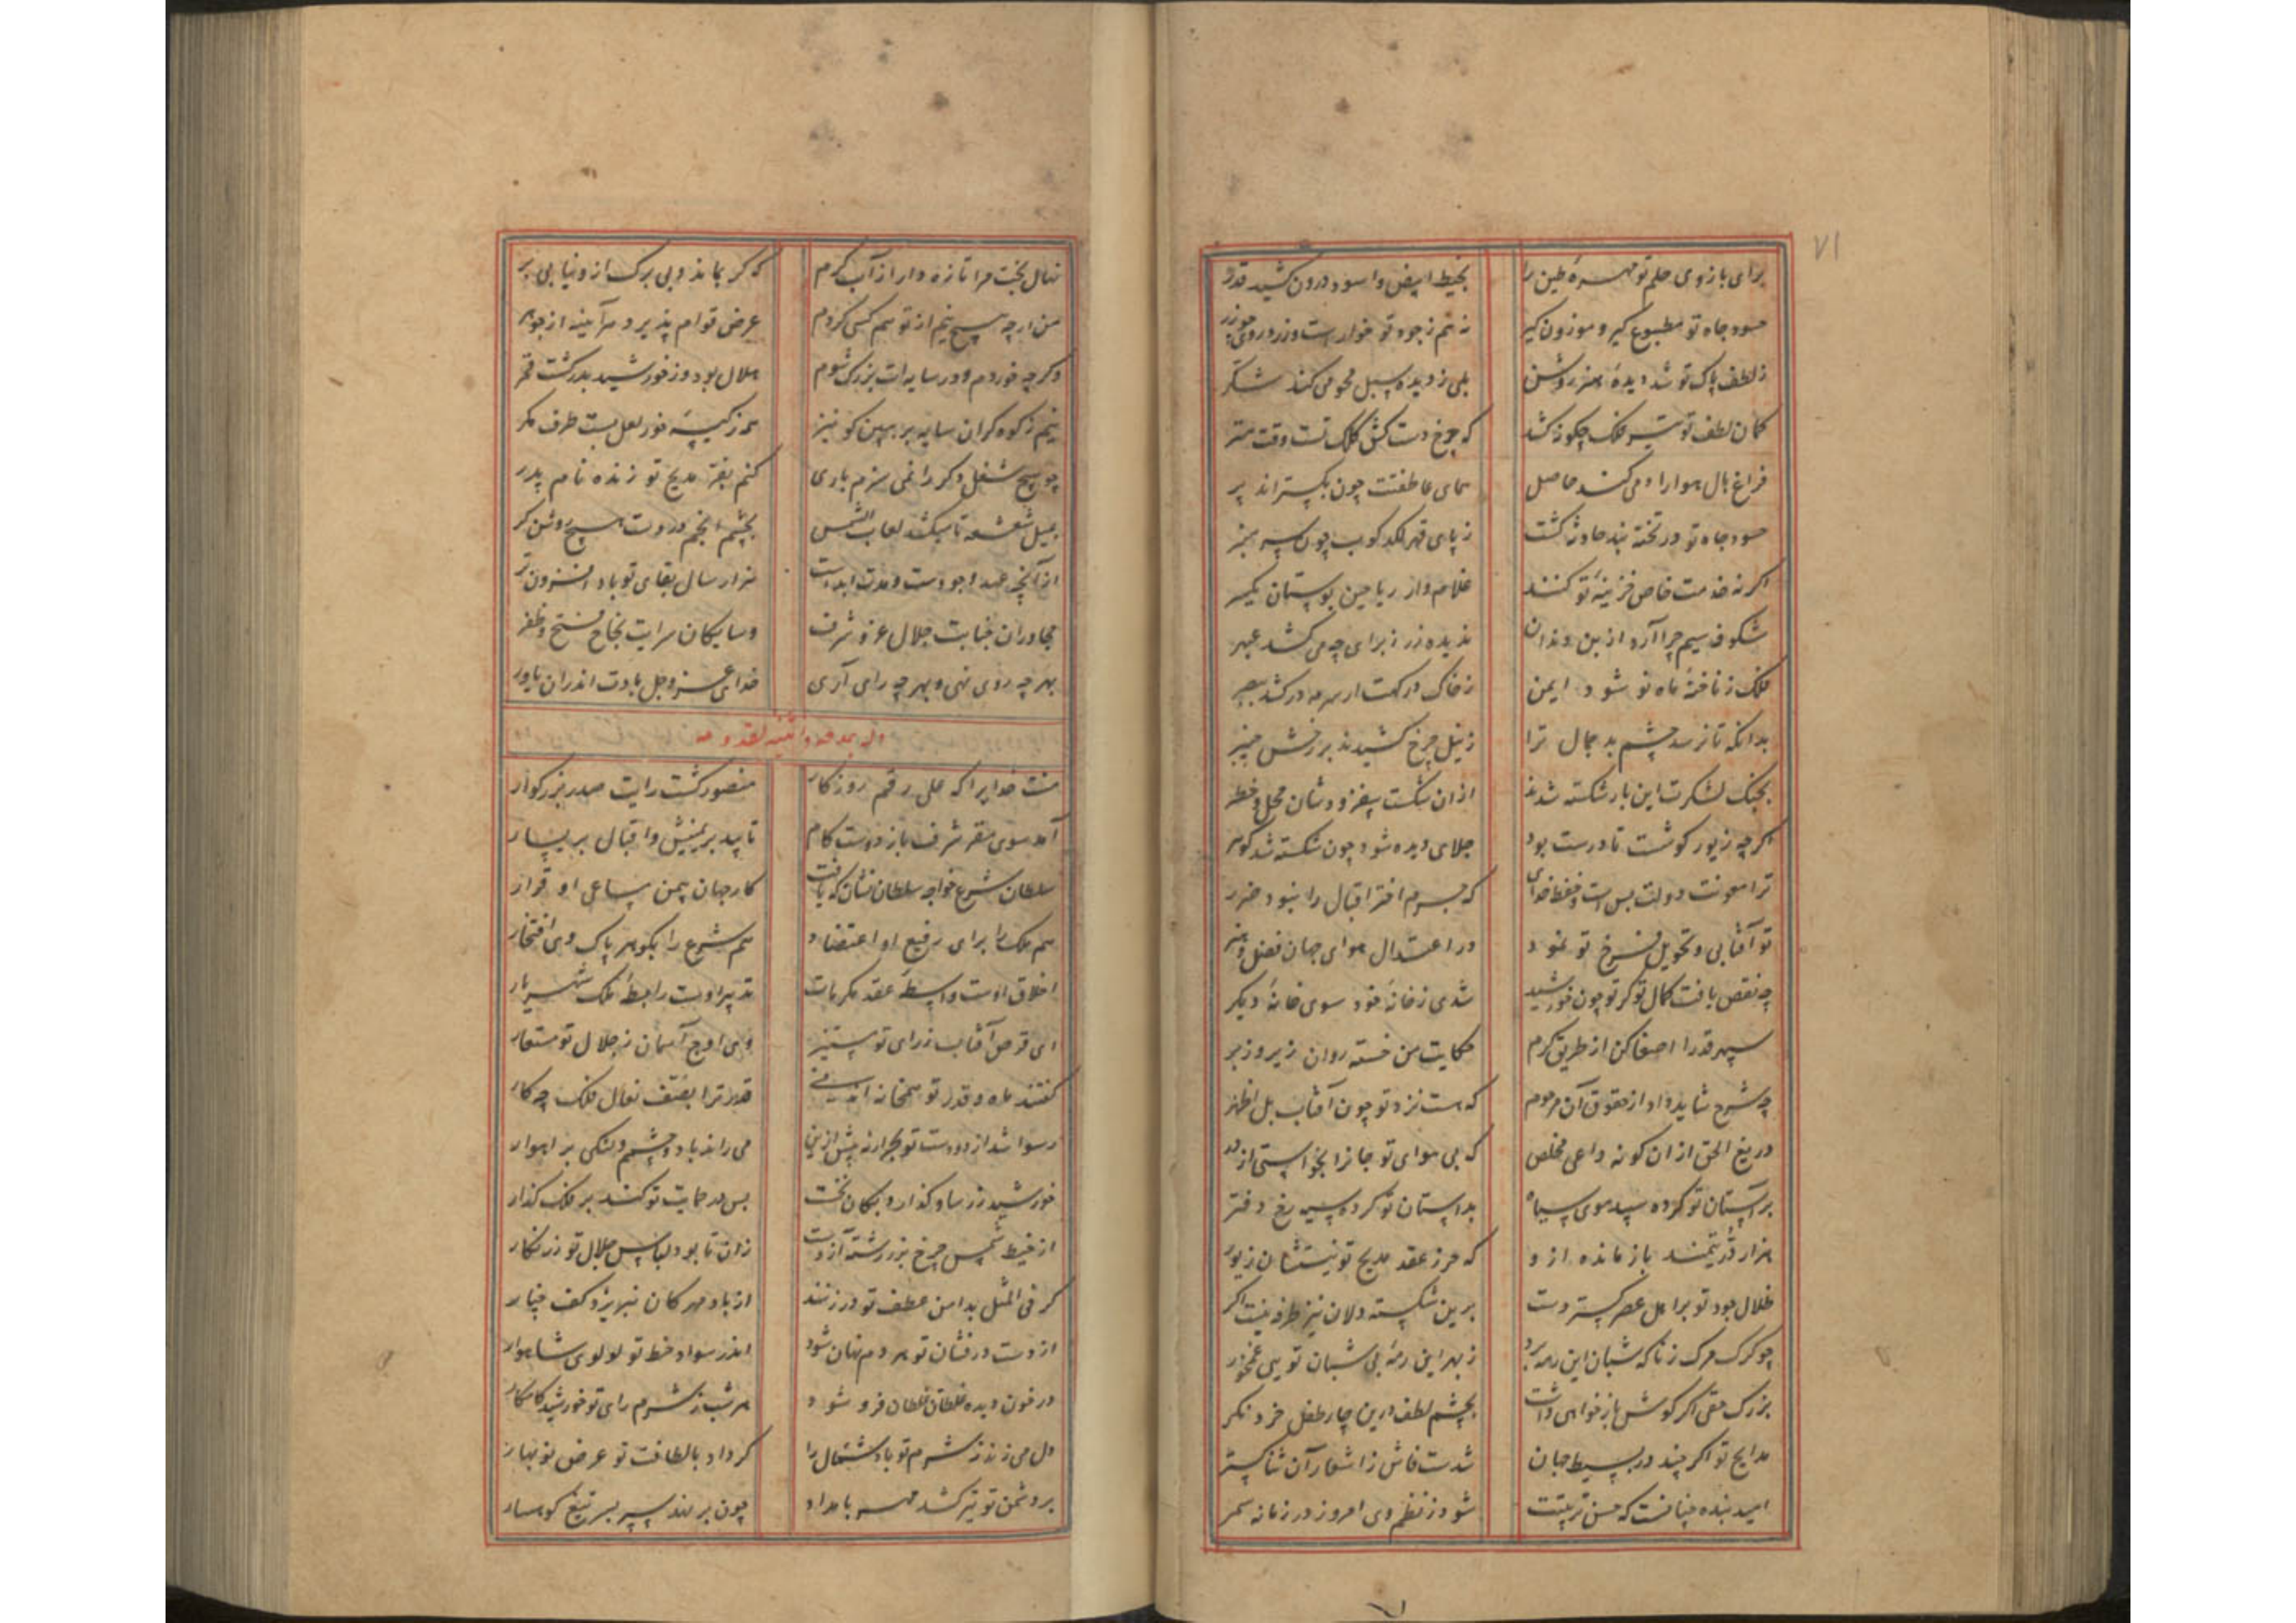 ۷۱
برای بازوی حلم تو مهره طین را بخیط ابیض و اسود درون کشید قدر
حسود جاه تو مطبوع گیر و موزون گیر نه هم ز جود تو خوارست و زرد روی چو زر
ز لطف پاک تو شد دیده هنر روشن بلی ز دیده سبل محو می کند شکر
کمان لطف تو تیر فلک چگونه کشد که چرخ دست کش کلک تست وقت هنر
فراغ بال هوا را همی کند حاصل همای عاطفتت چون بگستراند پر
حسود جاه تو در تخته بند حادثه گشت ز پای قهر لکدکوب چون سپهر
اگر نه خدمت خاص خزینه تو کنند غلام وار ریاحین بوستان یکسر
شکوفه سیم چرا آرد از بن دندان ندیده زر ز برای چه می کشد عبهر
فلک ز ناخنه ماه نو شود ایمن ز خاک درگهت ار سرمه درکشد ببصر
بدانکه تا نرسد چشم بد بجمال ترا ز نیل چرخ کشیدند بر رخش چنبر
بجنگ لشکرت این بار شکسته شدند ازان شکست بیفزودشان محل و خطر
اگرچه زیور گوشست تا درست بود جلای دیده شود چون شکسته شد گوهر
ترا معونت دولت بس است و حفظ خدای که جرم اختر اقبال را نبود ضرر
تو آفتابی و تحویل فرخ تو نمود در اعتدال هوای جهان فضل و هنر
چه نقص یافت کمال تو گر تو چون خورشید شدی ز خانه خود سوی خانه دیگر
سپهر قدرا اصغا کن از طریق کرم حکایت من خسته روان زیر و زبر
چه شرح شاید داد از حقوق آن مرحوم که هست نزد تو چون آفتاب بل اظهر
دریغ الحق ازان گونه داعی مخلص که بی هوای تو جانرا نخواستی از بر
بر آستان تو کرده سپید موی سیاه بداستان تو کرده سیه رخ دفتر
هزار در یتیمند باز مانده ازو که جز ز عقد مدیح تو نیستشان زیور
ظلال جود تو بر اهل عصر گستردست برین شکسته دلان نیز طرفه نیست اگر
چو گرگ مرگ ز ناگه شبان این رمه برد ز بهر این رمه بی شبان تویی غمخور
بزرگ حقی اگر گوش باز خواهی داشت بچشم لطف درین چار طفل خرد نگر
مدایح تو اگر چند در بسیط جهان شدست فاش ز اشعار آن ثنا گستر
امید بنده چنانست که حسن تربیتت شود ز نظم وی امروز در زمانه سمر
نهال بخت مرا تازه دار از آب کرم که گر بماند وبی برگ ازو نیابی بر
من ارچه هیچ نیم از تو هم کسی گردم عرض قوام پذیرد هر آینه از جوهر
وگرچه خوردم در سایه ات بزرگ شوم هلال بود و ز خورشید بدر گشت قمر
نیم ز کوه گران سایه تر ببین کو نیز هم ز کیسه خور لعل بست طرف کمر
چو هیچ شغل دگر را نمی سزم باری کنم بفر مدیح تو زنده نام پدر
بمیل شعشعه تا میکشد لعاب الشمس بچشم انجم در وقت صبح روشن گر
از آنچه عهد وجودست و مدت ابدست هزار سال بقای تو باد افزون تر
مجاوران جنابت جلال عز و شرف وسایگان سرایت نجاح و فتح و ظفر
بهر چه روی نهی و بهر چه رای آری خدای عز و جل بادت اندران یاور
وله یمدحه و تهنیته لقدومه
منت خدایرا که علی رغم روزگار منصور گشت رایت صدر بزرگوار
آمد سوی مقر شرف باز دوست کام تایید بر یمینش و اقبال بر یسار
سلطان شرع خواجه سلطان نشان که یافت کار جهان بیمن مساعی او قرار
هم ملک را برای رفیع او اعتضاد هم شرع را بگوهر پاک وی افتخار
اخلاق اوست واسطه عقد مکرمات تدبیر اوست رابطه ملک شهریار
ای قرص آفتاب ز رای تو مستنیر وی اوج آسمان ز جلال تو مستعار
گفتند ماه و قدر تو همخانه قدر ترا بصف نعال فلک چه کار
رسوا شد از دو دست تو بحر ار نه پیش ازین می راند باد و چشم و لنگی براهوار
خورشید زر سا و گذارد بکان نخست پس مر حمایت تو کنند بر فلک گذار
از خیط شمس چرخ بزر رشته آژدست زان تا بود لباس جلال تو زرنگار
گر فی المثل بدامن عطف تو در زنند از باد مهرگان نبریزد کف چنار
از دست درفشان تو هر دم نهان شود اندر سواد خط تو لولوی شاهوار
در خون دیده غلطان غلطان فرو شود هر شب ز شرم رای تو خورشید کامگار
دل می زند ز شرم تو باد شمال را گر داد با لطافت تو عرض نوبهار
بر دشمن تو تیر کشد مهر بامداد چون بر نهد سپر بسر تیغ کوهسار